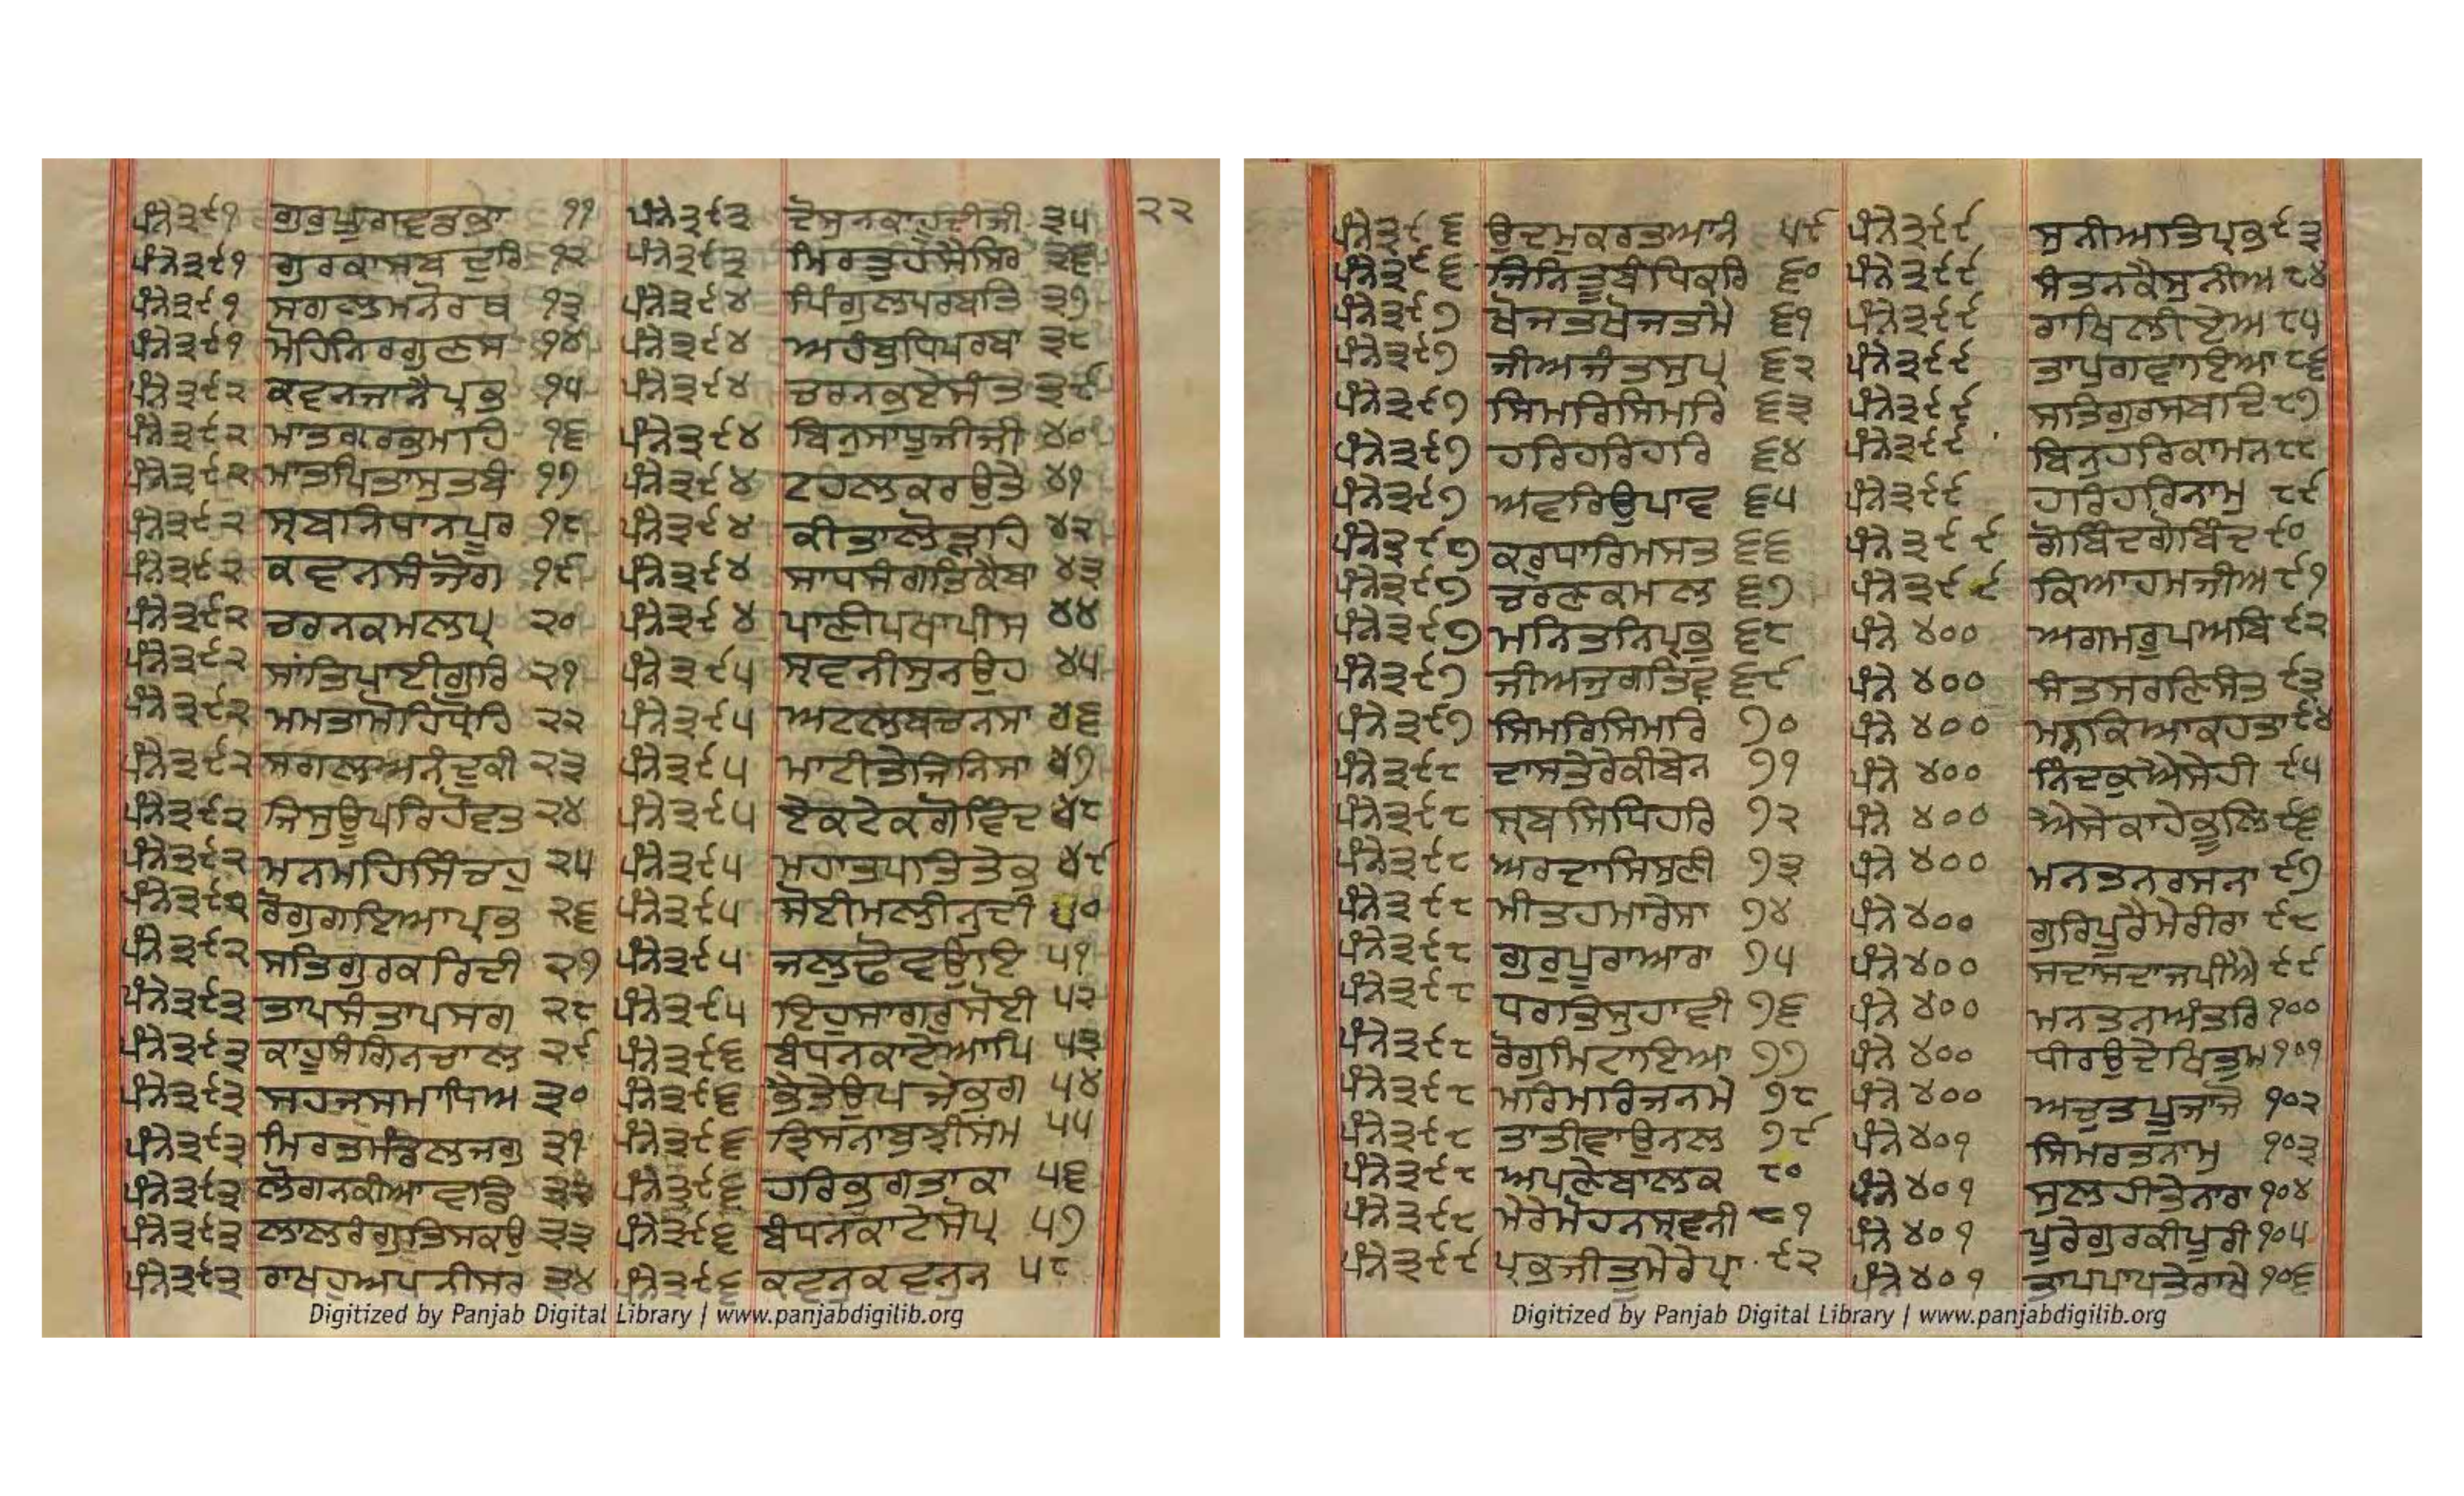 ੨੨
ਪੰਨੇ ੩੯੧ ਗੁਰੁਪੂਰਾਵਡਭਾ ੧੧
ਪੰਨੇ ੩੯੧ ਗੁਰਕਾਸਬਦੁਰਿ ੧੨
ਪੰਨੇ ੩੯੧ ਸਗਲਮਨੋਰਥ ੧੩
ਪੰਨੇ ੩੯੧ ਮੋਹਿਨਿਰਗੁਣਸ ੧੪
ਪੰਨੇ ੩੯੨ ਕਵਨਜਾਨੈਪ੍ਰਭ ੧੫
ਪੰਨੇ ੩੯੨ ਮਾਤਗਰਭਮਹਿ ੧੬
ਪੰਨੇ ੩੯੨ ਮਾਤਪਿਤਾਸੁਤਬੰ ੧੭
ਪੰਨੇ ੩੯੨ ਸ੍ਰਬਨਿਧਾਨਪੂਰ ੧੮
ਪੰਨੇ ੩੯੨ ਕਵਨਸੰਜੋਗ ੧੯
ਪੰਨੇ ੩੯੨ ਚਰਨਕਮਲਪ੍ਰ ੨੦
ਪੰਨੇ ੩੯੨ ਸਾਂਤਿਪਾਈਗੁਰਿ ੨੧
ਪੰਨੇ ੩੯੨ ਮਮਤਾਮੋਹਿਧ੍ਰੋਹਿ ੨੨
ਪੰਨੇ ੩੯੨ ਸਗਲਅਨੰਦੁਕੀ ੨੩
ਪੰਨੇ ੩੯੨ ਜਿਸੁਊਪਰਿਹੋਵਤ ੨੪
ਪੰਨੇ ੩੯੨ ਮਨਮਹਿਸਿੰਚਹੁ ੨੫
ਪੰਨੇ ੩੯੨ ਰੋਗੁਗਇਆਪ੍ਰਭ ੨੬
ਪੰਨੇ ੩੯੨ ਸਤਿਗੁਰਕਰਿਦੀ ੨੭
ਪੰਨੇ ੩੯੩ ਤਾਪਸੰਤਾਪਸਗ ੨੮
ਪੰਨੇ ੩੯੩ ਕਾਹੂਸੰਗਿਨਚਾਲ ੨੯
ਪੰਨੇ ੩੯੩ ਸਹਜਸਮਾਧਿਅ ੩੦
ਪੰਨੇ ੩੯੩ ਮਿਰਤਮੰਡਲਜਗੁ ੩੧
ਪੰਨੇ ੩੯੩ ਲੋਗਨਕੀਆਵਡਿ ੩੨
ਪੰਨੇ ੩੯੩ ਲਾਲਰੰਗੁਤਿਸਕਉ ੩੩
ਪੰਨੇ ੩੯੩ ਰਾਖਹੁਅਪਨੀਸਰ ੩੪
ਪੰਨੇ ੩੯੩ ਦੋਸੁਨਕਾਹੂਦੀਜੀ ੩੫
ਪੰਨੇ ੩੯੩ ਮਿਰਤੁਹਸੈਸਿਰ ੩੬
ਪੰਨੇ ੩੯੪ ਪਿੰਗੁਲਪਰਬਤਿ ੩੭
ਪੰਨੇ ੩੯੪ ਅਹੰਬੁਧਿਪਰਬਾ ੩੮
ਪੰਨੇ ੩੯੪ ਚਰਨਭਏਸੰਤ ੩੯
ਪੰਨੇ ੩੯੪ ਬਿਨੁਸਾਧੂਜੀਜੀ ੪੦
ਪੰਨੇ ੩੯੪ ਟਹਲਕਰਉਤੇ ੪੧
ਪੰਨੇ ੩੯੪ ਕੀਤਾਲੋੜਹਿ ੪੨
ਪੰਨੇ ੩੯੪ ਸਾਧਸੰਗਤਿਕੈਬਾ ੪੩
ਪੰਨੇ ੩੯੪ ਪਾਣੀਪਖਾਪੀਸ ੪੪
ਪੰਨੇ ੩੯੫ ਸ੍ਰਵਨੀਸੁਨਉਹ ੪੫
ਪੰਨੇ ੩੯੫ ਅਟਲਬਚਨਸਾ ੪੬
ਪੰਨੇ ੩੯੫ ਮਾਟੀਤੇਜਿਨਿਸਾ ੪੭
ਪੰਨੇ ੩੯੫ ਏਕਟੇਕਗੋਵਿੰਦ ੪੮
ਪੰਨੇ ੩੯੫ ਮਹਾਤਪਤਿਤੇਭ ੪੯
ਪੰਨੇ ੩੯੫ ਸੋਈਮਲੀਨੁਦੀ ੫੦
ਪੰਨੇ ੩੯੫ ਜਲੁਢੋਵਉਇ ੫੧
ਪੰਨੇ ੩੯੫ ਇਹੁਸਾਗਰੁਸੋਈ ੫੨
ਪੰਨੇ ੩੯੬ ਬੰਧਨਕਾਟੇਆਪਿ ੫੩
ਪੰਨੇ ੩੯੬ ਭੈਤੇਉਪਜੇਭਗ ੫੪
ਪੰਨੇ ੩੯੬ ਤ੍ਰਿਸਨਾਬੁਝੀਮਮ ੫੫
ਪੰਨੇ ੩੯੬ ਹਰਿਭਗਤਾਕਾ ੫੬
ਪੰਨੇ ੩੯੬ ਬੰਧਨਕਾਟੇਸੋਪ੍ਰ ੫੭
ਪੰਨੇ ੩੯੬ ਕਵਨੁਕਵਨੁਨ ੫੮
Digitized by Panjab Digital Library | www.panjabdigilib.org
ਪੰਨੇ ੩੯੬ ਉਦਮੁਕਰਤਆਨੰ ੫੯
ਪੰਨੇ ੩੯੬ ਜਿਨਿਤੂਬੰਧਿਕਰਿ ੬੦
ਪੰਨੇ ੩੯੭ ਖੋਜਤਖੋਜਤਮੈ ੬੧
ਪੰਨੇ ੩੯੭ ਜੀਅਜੰਤਸੁਪ੍ਰ ੬੨
ਪੰਨੇ ੩੯੭ ਸਿਮਰਿਸਿਮਰਿ ੬੩
ਪੰਨੇ ੩੯੭ ਹਰਿਹਰਿਹਰਿ ੬੪
ਪੰਨੇ ੩੯੭ ਅਵਰਿਉਪਾਵ ੬੫
ਪੰਨੇ ੩੯੭ ਕਰੁਧਾਰਿਮਸਤ ੬੬
ਪੰਨੇ ੩੯੭ ਚਰਣਕਮਲ ੬੭
ਪੰਨੇ ੩੯੭ ਮਨਿਤਨਿਪ੍ਰਭੁ ੬੮
ਪੰਨੇ ੩੯੭ ਜੀਅਜੁਗਤਿਵ ੬੯
ਪੰਨੇ ੩੯੭ ਸਿਮਰਿਸਿਮਰਿ ੭੦
ਪੰਨੇ ੩੯੮ ਦਾਸਤੇਰੇਕੀਬੇਨ ੭੧
ਪੰਨੇ ੩੯੮ ਸ੍ਰਬਸਿਧਿਹਰਿ ੭੨
ਪੰਨੇ ੩੯੮ ਅਰਦਾਸਿਸੁਣੀ ੭੩
ਪੰਨੇ ੩੯੮ ਮੀਤਹਮਾਰੋਸਾ ੭੪
ਪੰਨੇ ੩੯੮ ਗੁਰੁਪੂਰਾਆਰਾ ੭੫
ਪੰਨੇ ੩੯੮ ਧਰਤਿਸੁਹਾਵੀ ੭੬
ਪੰਨੇ ੩੯੮ ਰੋਗੁਮਿਟਾਇਆ ੭੭
ਪੰਨੇ ੩੯੮ ਮਰਿਮਰਿਜਨਮੇ ੭੮
ਪੰਨੇ ੩੯੮ ਤਾਤੀਵਾਉਨਲ ੭੯
ਪੰਨੇ ੩੯੮ ਅਪਣੇਬਾਲਕ ੮੦
ਪੰਨੇ ੩੯੮ ਮੇਰੇਮੋਹਨਸ੍ਰਵਨੀ ੮੧
ਪੰਨੇ ੩੯੯ ਪ੍ਰਭਜੀਤੂਮੇਰੇਪ੍ਰਾ ੯੨
ਪੰਨੇ ੩੯੯ ਸੁਨੀਅਤਿਪ੍ਰਭ ੯੩
ਪੰਨੇ ੩੯੯ ਸੰਤਨਕੈਸੁਨੀਅ ੮੪
ਪੰਨੇ ੩੯੯ ਰਾਖਿਲੀਏਅ ੮੫
ਪੰਨੇ ੩੯੯ ਤਾਪੁਗਵਾਇਆ ੮੬
ਪੰਨੇ ੩੯੯ ਸਤਿਗੁਰਸਬਦਿ ੮੭
ਪੰਨੇ ੩੯੯ ਬਿਨੁਹਰਿਕਾਮਨ ੮੮
ਪੰਨੇ ੩੯੯ ਹਰਿਹਰਿਨਾਮੁ ੮੯
ਪੰਨੇ ੩੯੯ ਗੋਬਿੰਦਗੋਬਿੰਦ ੯੦
ਪੰਨੇ ੩੯੯ ਕਿਆਹਮਜੀਅ ੯੧
ਪੰਨੇ ੪੦੦ ਅਗਮਰੂਪਅਬਿ ੯੨
ਪੰਨੇ ੪੦੦ ਸੰਤਸਰਣਿਸੰਤ ੯੩
ਪੰਨੇ ੪੦੦ ਮਨੁਕਿਆਕਹਤਾ ੯੪
ਪੰਨੇ ੪੦੦ ਨਿੰਦਕੁਐਸੇਹੀ ੯੫
ਪੰਨੇ ੪੦੦ ਐਸੇਕਾਹੇਭੂਲਿ ੯੬
ਪੰਨੇ ੪੦੦ ਮਨਤਨਰਸਨਾ ੯੭
ਪੰਨੇ ੪੦੦ ਗੁਰਿਪੂਰੈਮੇਰੀਰਾ ੯੮
ਪੰਨੇ ੪੦੦ ਸਦਾਸਦਾਜਪੀਐ ੯੯
ਪੰਨੇ ੪੦੦ ਮਨਤਨਅੰਤਰਿ ੧੦੦
ਪੰਨੇ ੪੦੦ ਧੀਰਉਦੇਖਿਤੁਮ ੧੦੧
ਪੰਨੇ ੪੦੦ ਅਚੁਤਪੂਜਾਜੋ ੧੦੨
ਪੰਨੇ ੪੦੧ ਸਿਮਰਤਨਾਮੁ ੧੦੩
ਪੰਨੇ ੪੦੧ ਸੁਲਹੀਤੇਨਾਰਾ ੧੦੪
ਪੰਨੇ ੪੦੧ ਪੂਰੇਗੁਰਕੀਪੂਰੀ ੧੦੫
ਪੰਨੇ ੪੦੧ ਤਾਪਪਾਪਤੇਰਾਖੇ ੧੦੬
Digitized by Panjab Digital Library | www.panjabdigilib.org